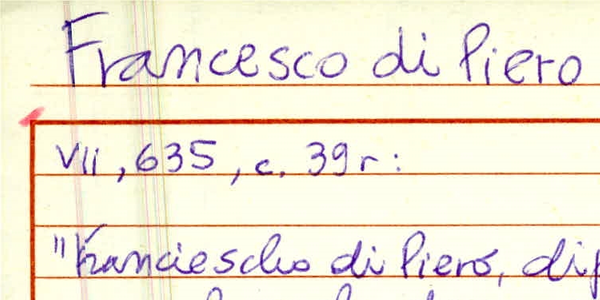 Francesco di Piero
VII, 635, c. 39r:
"Franciescho di Piero,